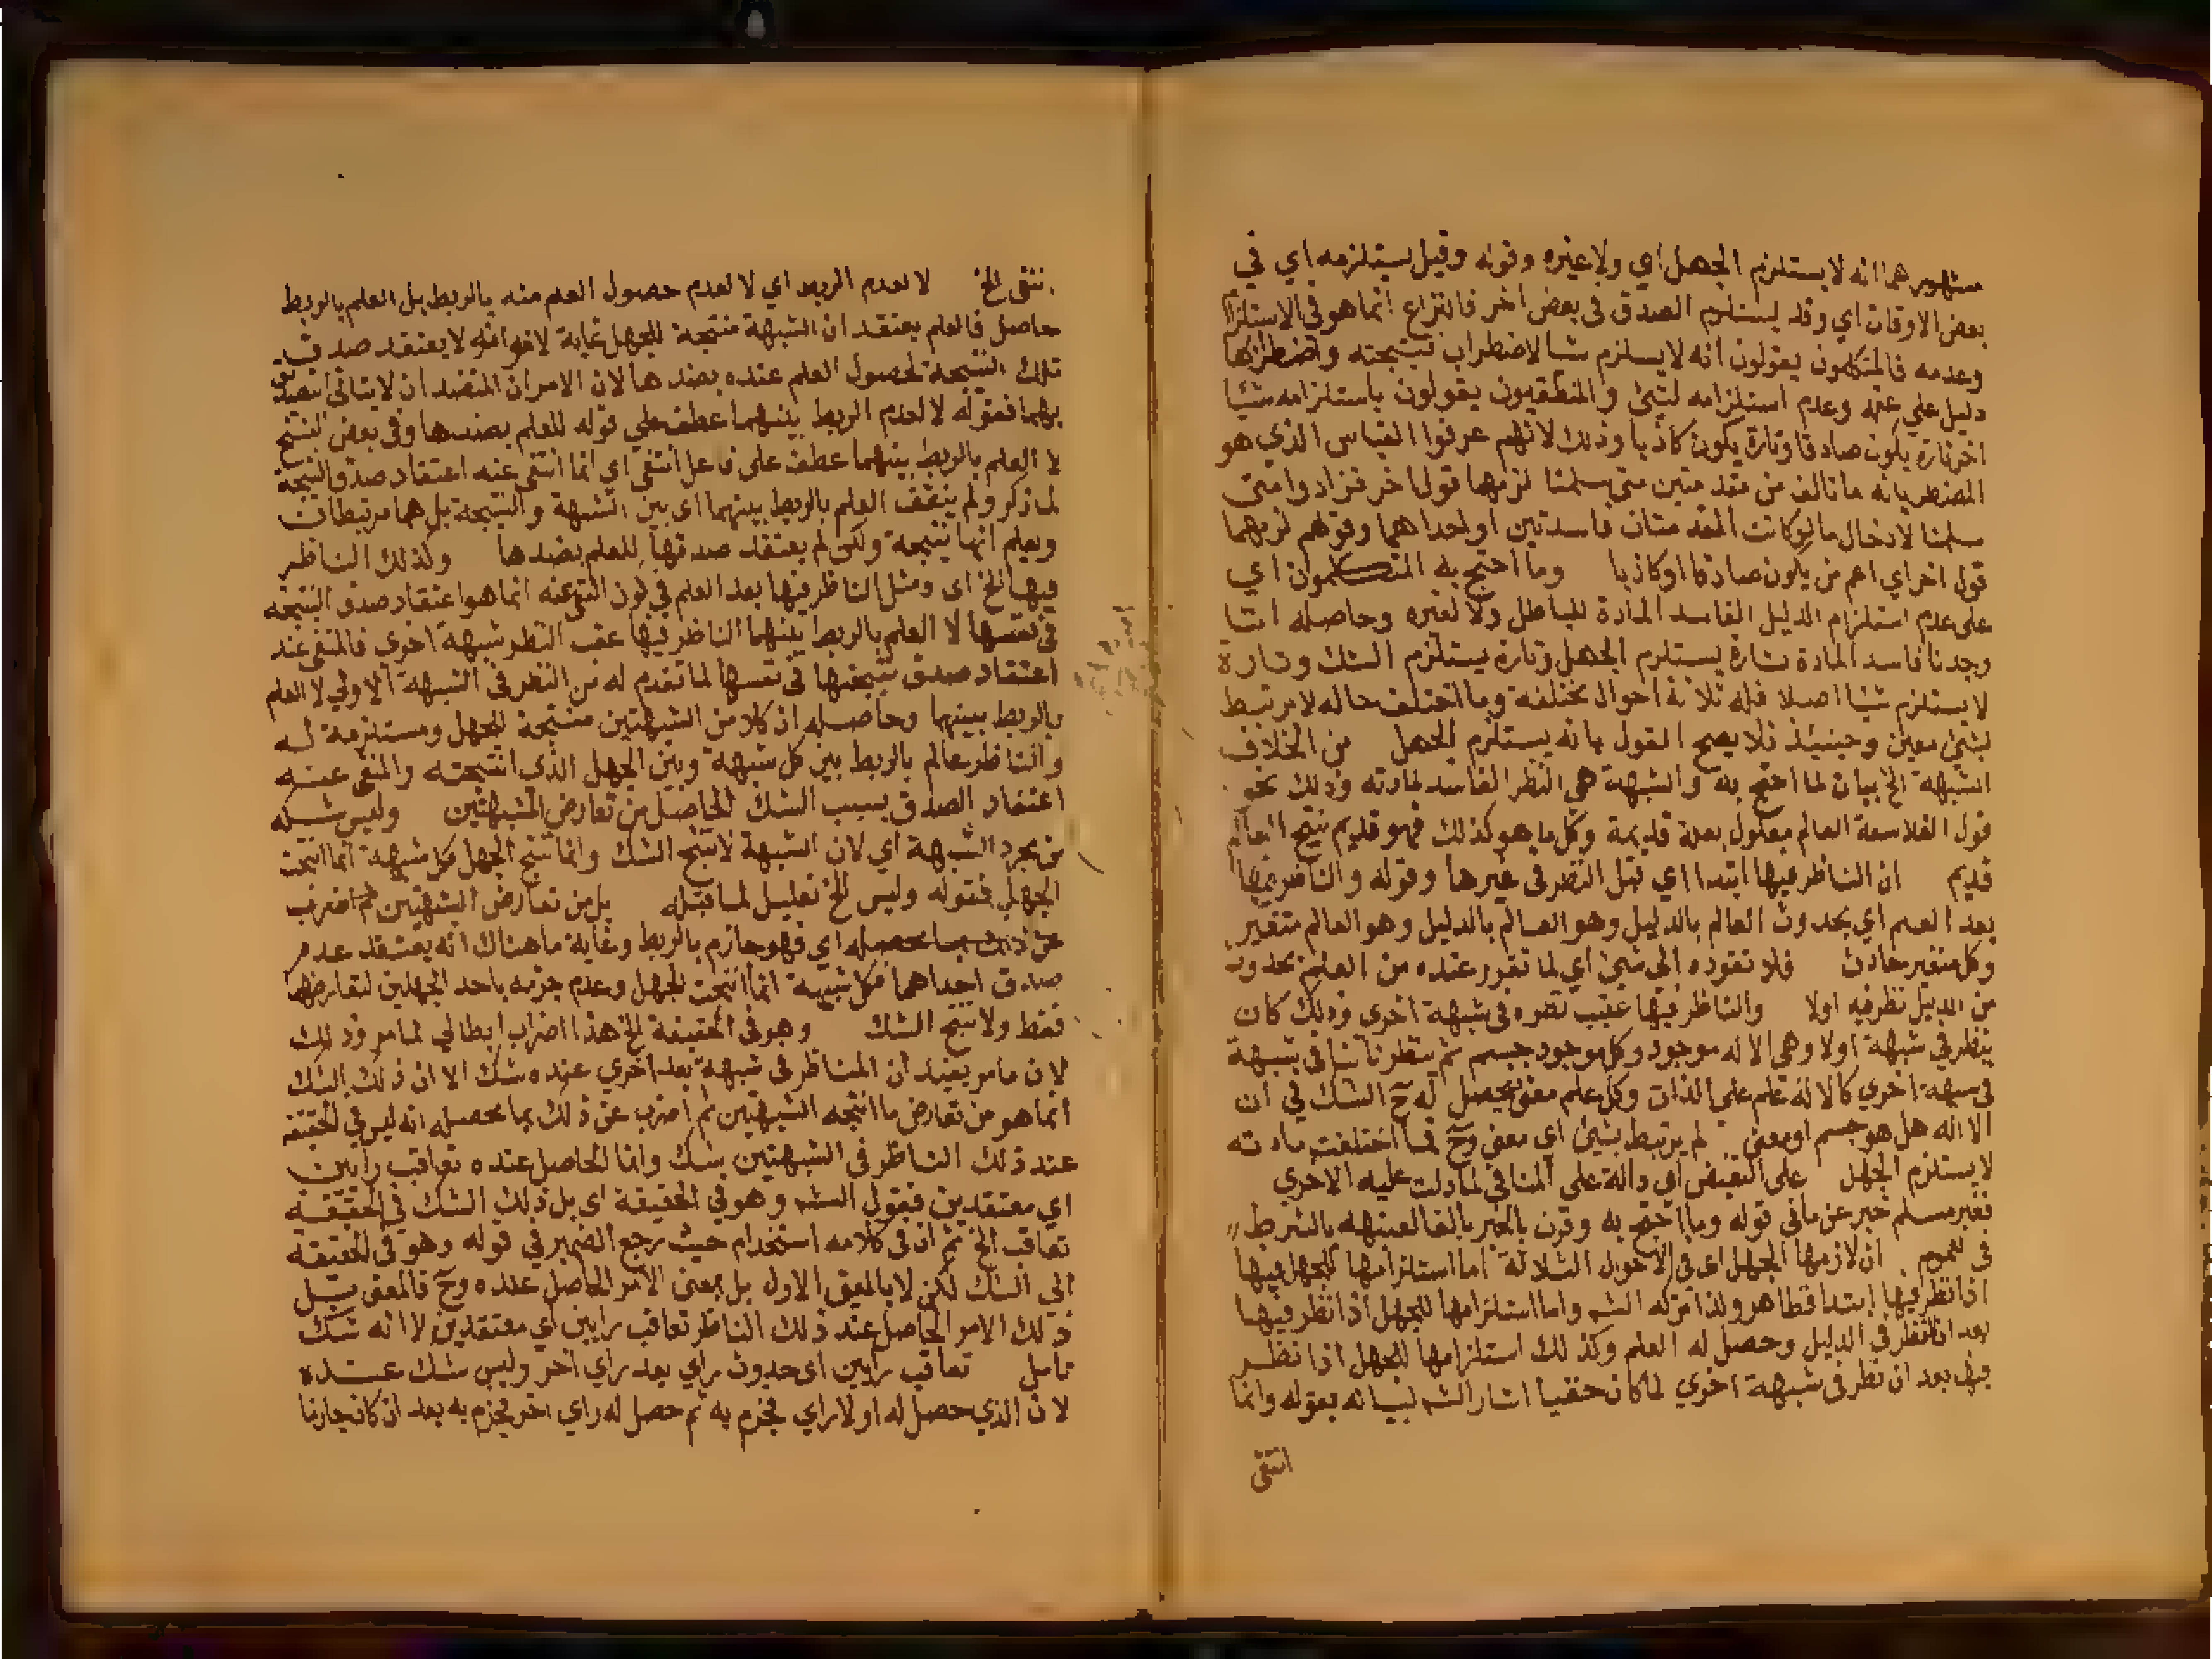 مشهورهما انه لا يستلزم الجهل اي ولا غيره وقوله وقيل يستلزمه اي في
بعض الاوقات اي وقد يستلزم الصدق في بعض اخر فالنزاع انما هو في الاستلزام
وعدمه فالمتكلمون يقولون انه لا يستلزم شيا لاضطراب نتيجته واضطرابها
دليل علي عدم استلزامه لشئ والمنطقيون يقولون باستلزامه شيا
اخر تارة يكون صادقا وتارة يكون كاذبا وذلك لانهم عرفوا القياس الذي هو
النظر بانه ما تالف من مقدمتين متي سلمتا لزمها قول اخر فزادوا متي
سلمتا لادخال ما لو كانت المقدمتان فاسدتين او احداهما وقولهم لزمهما
قول اخر اي اعم من يكون صادقا او كاذبا وما احتج به المتكلمون اي
علي عدم استلزام الدليل الفاسد المادة للباطل ولا لغيره وحاصله اننا
وجدنا فاسد المادة تارة يستلزم الجهل وتارة يستلزم الشك وتارة
لا يستلزم شيا اصلا فله ثلاثة احوال مختلفة وما اختلف حاله لا يرتبط
بشئ معين وحينئذ فلا يصح القول بانه يستلزم الجهل من الخلاف
الشبهة الخ بيان لما احتج به والشبهة هي النظر الفاسد لمادته وذلك نحو
قول الفلاسفة العالم معلول بعلة قديمة وكل ما هو كذلك فهو قديم ينتج العالم
قديم ان الناظر فيها ابتدا اي قبل النظر في غيرها وقوله والناظر فيها
بعد العلم اي بحدوث العالم بالدليل وهو العالم بالدليل وهو العالم متغير
وكل متغير حادث فلا تقوده الي شئ اي لما تقرر عنده من العلم بحدوث
من الدليل نظر فيه اولا والناظر فيها عقيب نظره في شبهة اخري وذلك كان
ينظر في شبهة اولا وهي الاله موجود وكل موجود جسم ثم ينظر ثانيا في شبهة
في شبهة اخري كالاله علم علي الذات وكل علم معني يحصل له ح الشك في ان
الاله هل هو جسم او معني لم يرتبط بشئ اي معني وح فما اختلفت مادته
لا يستلزم الجهل علي النقيض اي دالة علي المنافي لما دلت عليه الاخري
فغير مسلم خبر عن ما في قوله وما احتج به وقرن بالخبر بالفا لشبهه بالشرط
في العموم ان لازمها الجهل اي في الاحوال الثلاثة اما استلزامها للجهل فيها
اذا نظر فيها ابتدا فظاهر ولذا تركه الشم واما استلزامها للجهل اذا نظر فيها
بعد ان نظر في الدليل وحصل له العلم وكذلك استلزامها للجهل اذا نظر
فيها بعد ان نظر في شبهة اخري لما كان خفيا اشار الشم لبيانه بقوله وانما
انتفي
انتفي الخ لا لعدم الربط اي لا لعدم حصول العلم منه بالربط بل العلم بالربط
حاصل فالعلم يعتقد ان الشبهة منتجة للجهل غاية لانه لا يعتقد صدق
تلك النتيجة لحصول العلم عنده بضدها لان الامران المتضد ان لا يتاتي التصديق
بهما فقوله لا لعدم الربط بينهما عطف علي قوله للعلم بضدها وفي بعض النسخ
لا العلم بالربط بينهما عطف علي فاعل انتفي اي انما انتفي عنه اعتقاد صدق النتيجة
لما ذكر ولم ينتف العلم بالربط بينهما اي بين الشبهة والنتيجة بل هما مرتبطان
ويعلم انها نتيجة ولكن لم يعتقد صدقها للعلم بضدها وكذلك الناظر
فيها الخ اي ومثل الناظر فيها بعد العلم في كون المنتفي عنه انما هو اعتقاد صدق النتيجة
في نفسها لا العلم بالربط بينهما الناظر فيها عقب النظر شبهة اخري فالمنتفي عند
اعتقاد صدق نتيجتها في نفسها لما تقدم له من النظر في الشبهة الاولي لا العلم
بالربط بينهما وحاصله ان كلا من الشبهتين منتجة للجهل ومستلزمة له
والناظر عالم بالربط بين كل شبهة وبين الجهل الذي انتجته والمنتفي عنه
اعتقاد الصدق بسبب الشك الحاصل من تعارض الشبهتين وليس شكه
من مجرد الشبهة اي لان الشبهة لا تنتج الشك وانما تنتج الجهل فكل شبهة انما انتجت
الجهل فقوله وليس الخ تعليل لما قبله بل من تعارض الشبهتين ثم اضرب
عن ذلك بما محصله اي فهو جازم بالربط وغاية ما هناك انه يعتقد عدم
صدق احداهما فكل شبهة انما انتجت الجهل وعدم جزمه باحد الجهلين لتعارضهما
فقط ولا ينتج الشك وهو في الحقيقة الخ هذا اضراب ابطالي لما مر وذلك
لان ما مر يفيد ان المناظر في شبهة بعد اخري عنده شك الا ان ذلك الشك
انما هو من تعارض ما انتجه الشبهتين ثم اضرب عن ذلك بما محصله انه ليس في الحقيقة
عند ذلك الناظر في الشبهتين شك وانما الحاصل عنده تعاقب رايين
اي معتقدين فقول الشم وهو في الحقيقة اي بل ذلك الشك في الحقيقة
تعاقب الخ ثم ان في كلامه استخدام حيث رجع الضمير في قوله وهو في الحقيقة
الي الشك لكن لا بالمعني الاول بل بمعني الامر الحاصل عنده وح فالمعني بل
ذلك الامر الحاصل عند ذلك الناظر تعاقب رايين اي معتقدين لا انه شك
تامل تعاقب رايين اي حدوث راي بعد راي اخر وليس شك عنده
لان الذي حصل له اولا راي فجزم به ثم حصل له راي اخر فجزم به بعد ان كان جازما